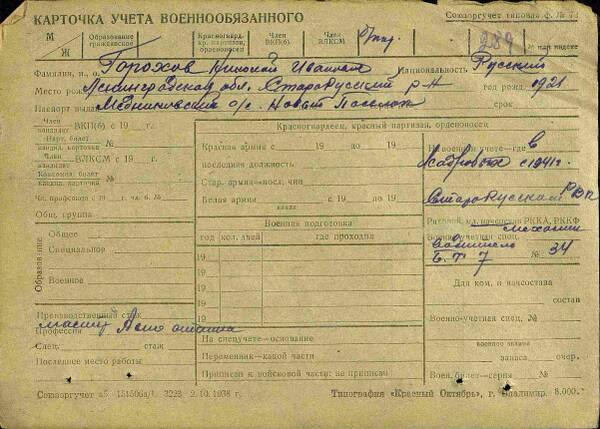 КАРТОЧКА УЧЕТА ВОЕННООБЯЗАННОГО
Союзоргучет типовая ф. № 72
М Ж
Образование гражданское
Красногвард. кр. партизан, орденоносец
Член ВКП(б)
Член ВЛКСМ
289
№ или индекс
Фамилия, и., о. Горохов Николай Иванович Национальность Русский
Место рожд. Ленинградская обл. СтароРусский р-н год рожд. 1921
Паспорт выдан Медниковский с/с. Новый Поселок
Член кандидат ВКП(б) с 19 г.
Парт. билет кандид. карточка №
Член кандидат ВЛКСМ с 19 г.
Комсомол. билет кандид. карточка №
Чл. профсоюза с 19 г. чл. б. №
Общ. группа
Красногвардеец, красный партизан, орденоносец
Красная армия с 19 по 19
последняя должность
Стар. армия—посл. чин
Белая армия с 19 по 19
На военном учете—где в
с 1941 г.
СтароРусском РВК
Рядовой, мл. начсостав РККА, РККФ
Военно-учетная спец.
механик
водитель
БТ 7 № 34
Образование
Общее
Специальное
Военное
Военная подготовка
год
кол. дней
где проходил
19
19
19
19
Для ком. и начсостава
состав
Военно-учетная спец. №
военное звание
запаса очер.
Воен. билет—серия №
Производственный стаж
Профессия
Спец. стаж
Последнее место работы
На спецучете—основание
Переменник—какой части
Приписан к войсковой части: не приписан
Союзоргучет 2.10.1938 г.
Типография «Красный Октябрь», г. Владимир. 8.000.